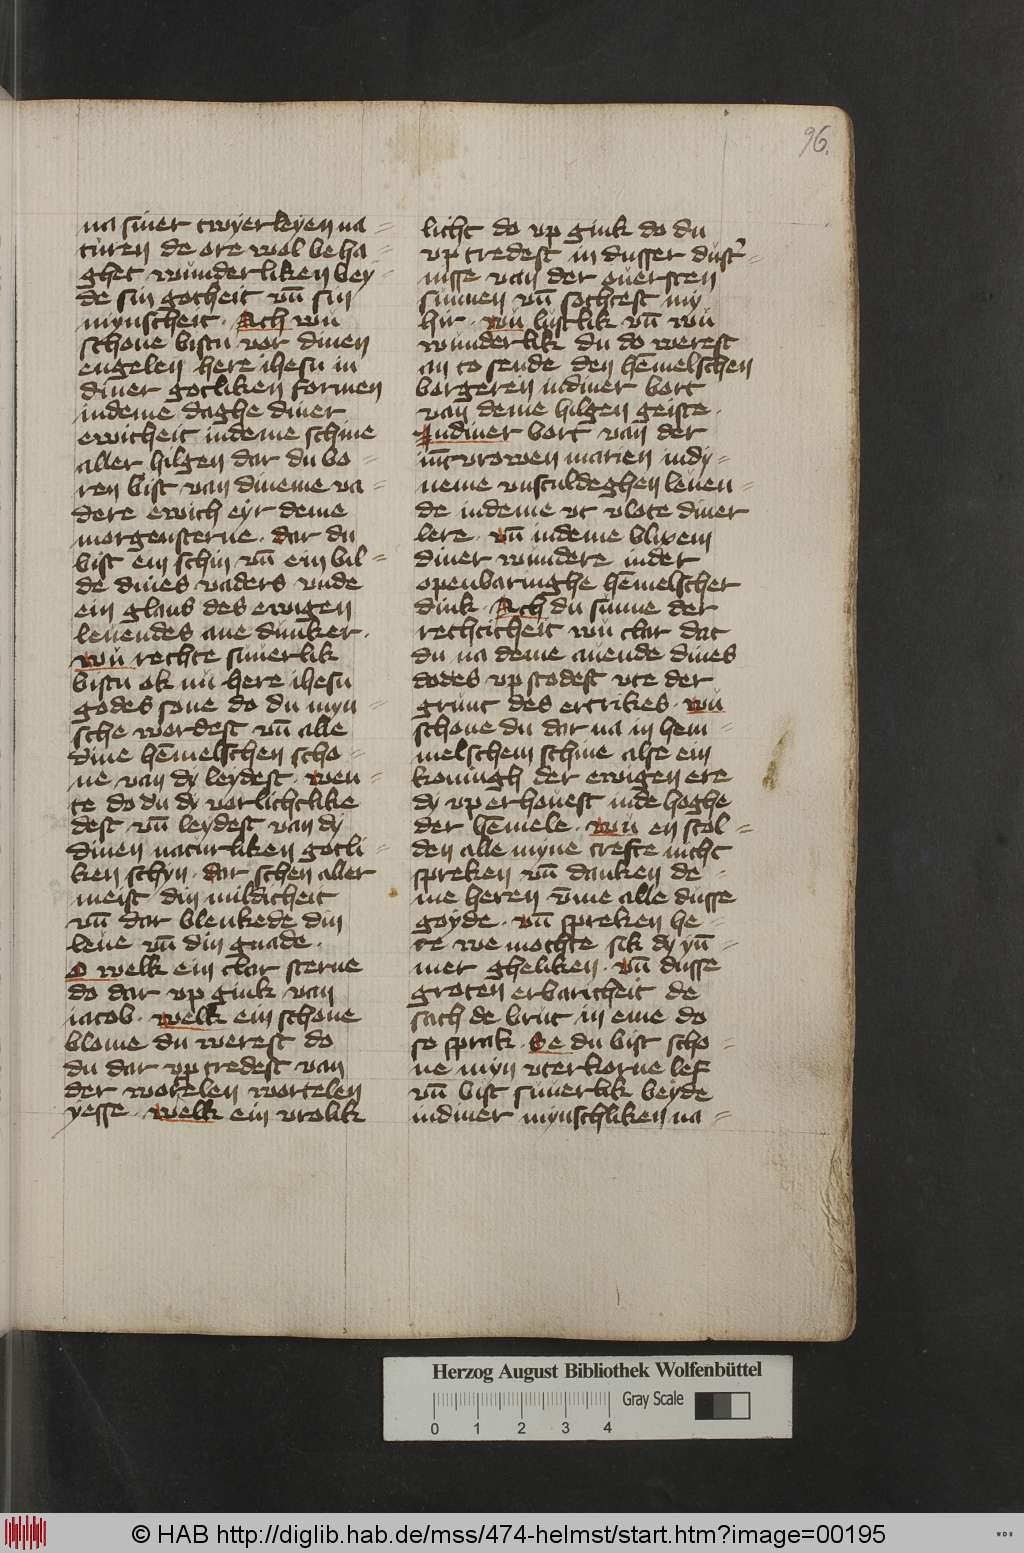 96.
na siner twyerleyen na=
turen de ore wol beha=
ghet wunderliken bey=
de sin gotheit vn̄ sin
mynscheit. Ach wu
schone bistu vor dinen
engelen here ihesu in
diner gotliken formen
indeme daghe diner
ewicheit indeme schine
aller hilgen dar du bo=
ren bist van dineme va=
dere ewich eyr deme
morgensterne. dar du
bist ein schin vn̄ ein bil=
de dines vaders vnde
ein glans des ewigen
leuendes ane dunker.
wu rechte suuerlik
bistu ok nu here ihesu
godes sone do du myn=
sche wordest vn̄ alle
dine hēmelschen scho=
ne van dy leydest. wen=
te do du dy vorlichtlike
dest vn̄ leydest van dy
dinen naturliken gotli=
ken schyn. dar schen aller
meist din mildicheit
vn̄ dar blenkede din
leue vn̄ din gnade.
O welk ein clar sterne
do dar vp gink van
iacob. welk ein schone
blome du werest do
du dar vp tredest van
der wortelen wortelen
yesse. welk ein vrolik
licht do vp gink do du
vp tredest in dusser dust'=
nisse van der ouersten
sunnen vn̄ sochtest my
hir. wu lustlik vn̄ wu
wunderlik du do werest
an to sende den hēmelschen
borgeren indiner bort
van deme hilgen geiste.
Indiner bort van der
iūcvrowen marien indy=
neme vnsculdeghen leuen=
de indeme vt vlote diner
lere. vn̄ indeme blixem
diner wundere inder
openbaringhe hēmelscher
dink. Ach du sunne der
rechticheit wu clar dat
du na deme auende dines
dodes vp stodest vte der
grunt des ertrikes. wu
schone du dar na in hem=
melschem schine alse ein
koningh der ewigen ere
dy vp erhouest inde hoghe
der hēmele. wu en scol=
den alle myne crefte nicht
spreken vn̄ danken de=
me heren vm̄e alle dusse
goyde. vn̄ spreken he=
re we mochte sik dy yū=
mer gheliken. vn̄ dusse
groten erbaricheit de
sach de brut in eme do
so sprak. Se du bist scho=
ne myn vterkorne lef
vn̄ bist suuerlik beyde
indiner mynschliken na=
Herzog August Bibliothek Wolfenbüttel
0 1 2 3 4
Gray Scale
© HAB http://diglib.hab.de/mss/474-helmst/start.htm?image=00195
WDB